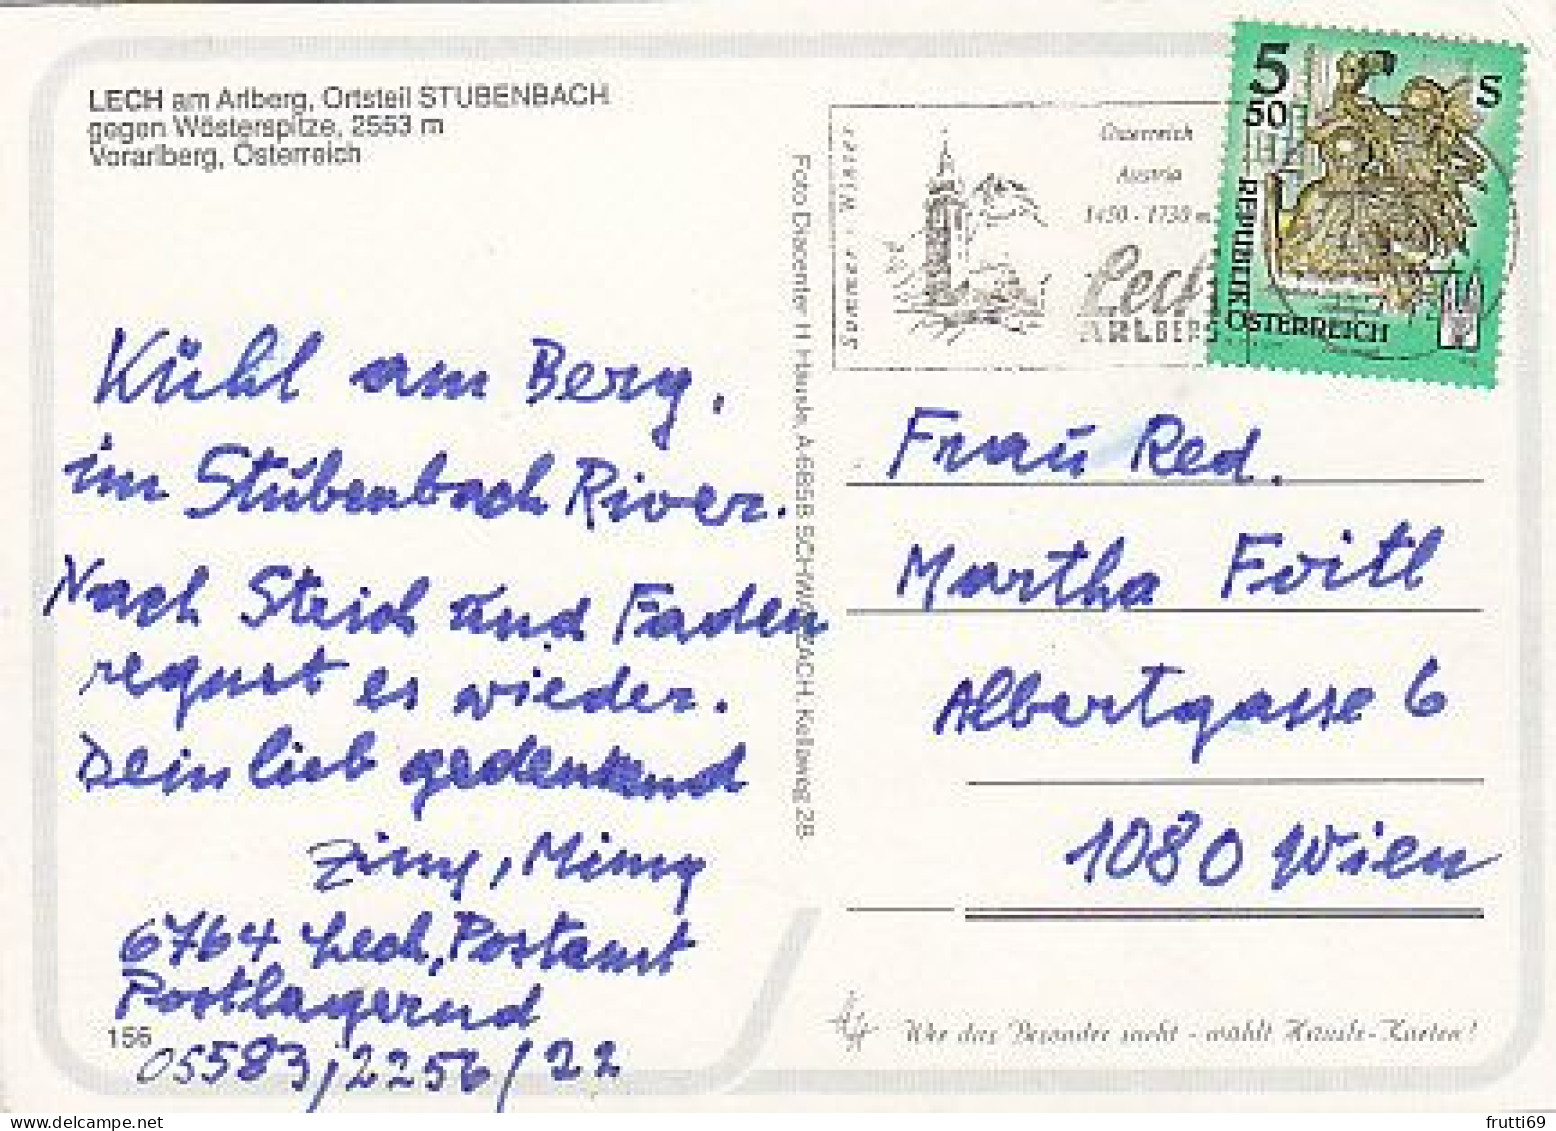 LECH am Arlberg, Ortsteil STUBENBACH
gegen Wösterspitze, 2553 m
Vorarlberg, Österreich
Kühl am Berg,
im Stubenbach River.
Nach Steich und Faden
regnet es wieder.
Dein lieb gedenkend
Zimy, Mimy
6764 Lech, Postamt
Postlagernd
156
05583/2256/22
Foto Diacenter H Hausle, A-6858 SCHWARZACH, Kellaweg 28
Sommer - Winter
Österreich
Austria
1450 - 1730 m
Lech
ARLBERG
5 S
50
REPUBLIK ÖSTERREICH
Frau Red.
Martha Foitl
Albertgasse 6
1080 Wien
Wer das Besondere sucht - wählt Hausle-Karten!
frutti69